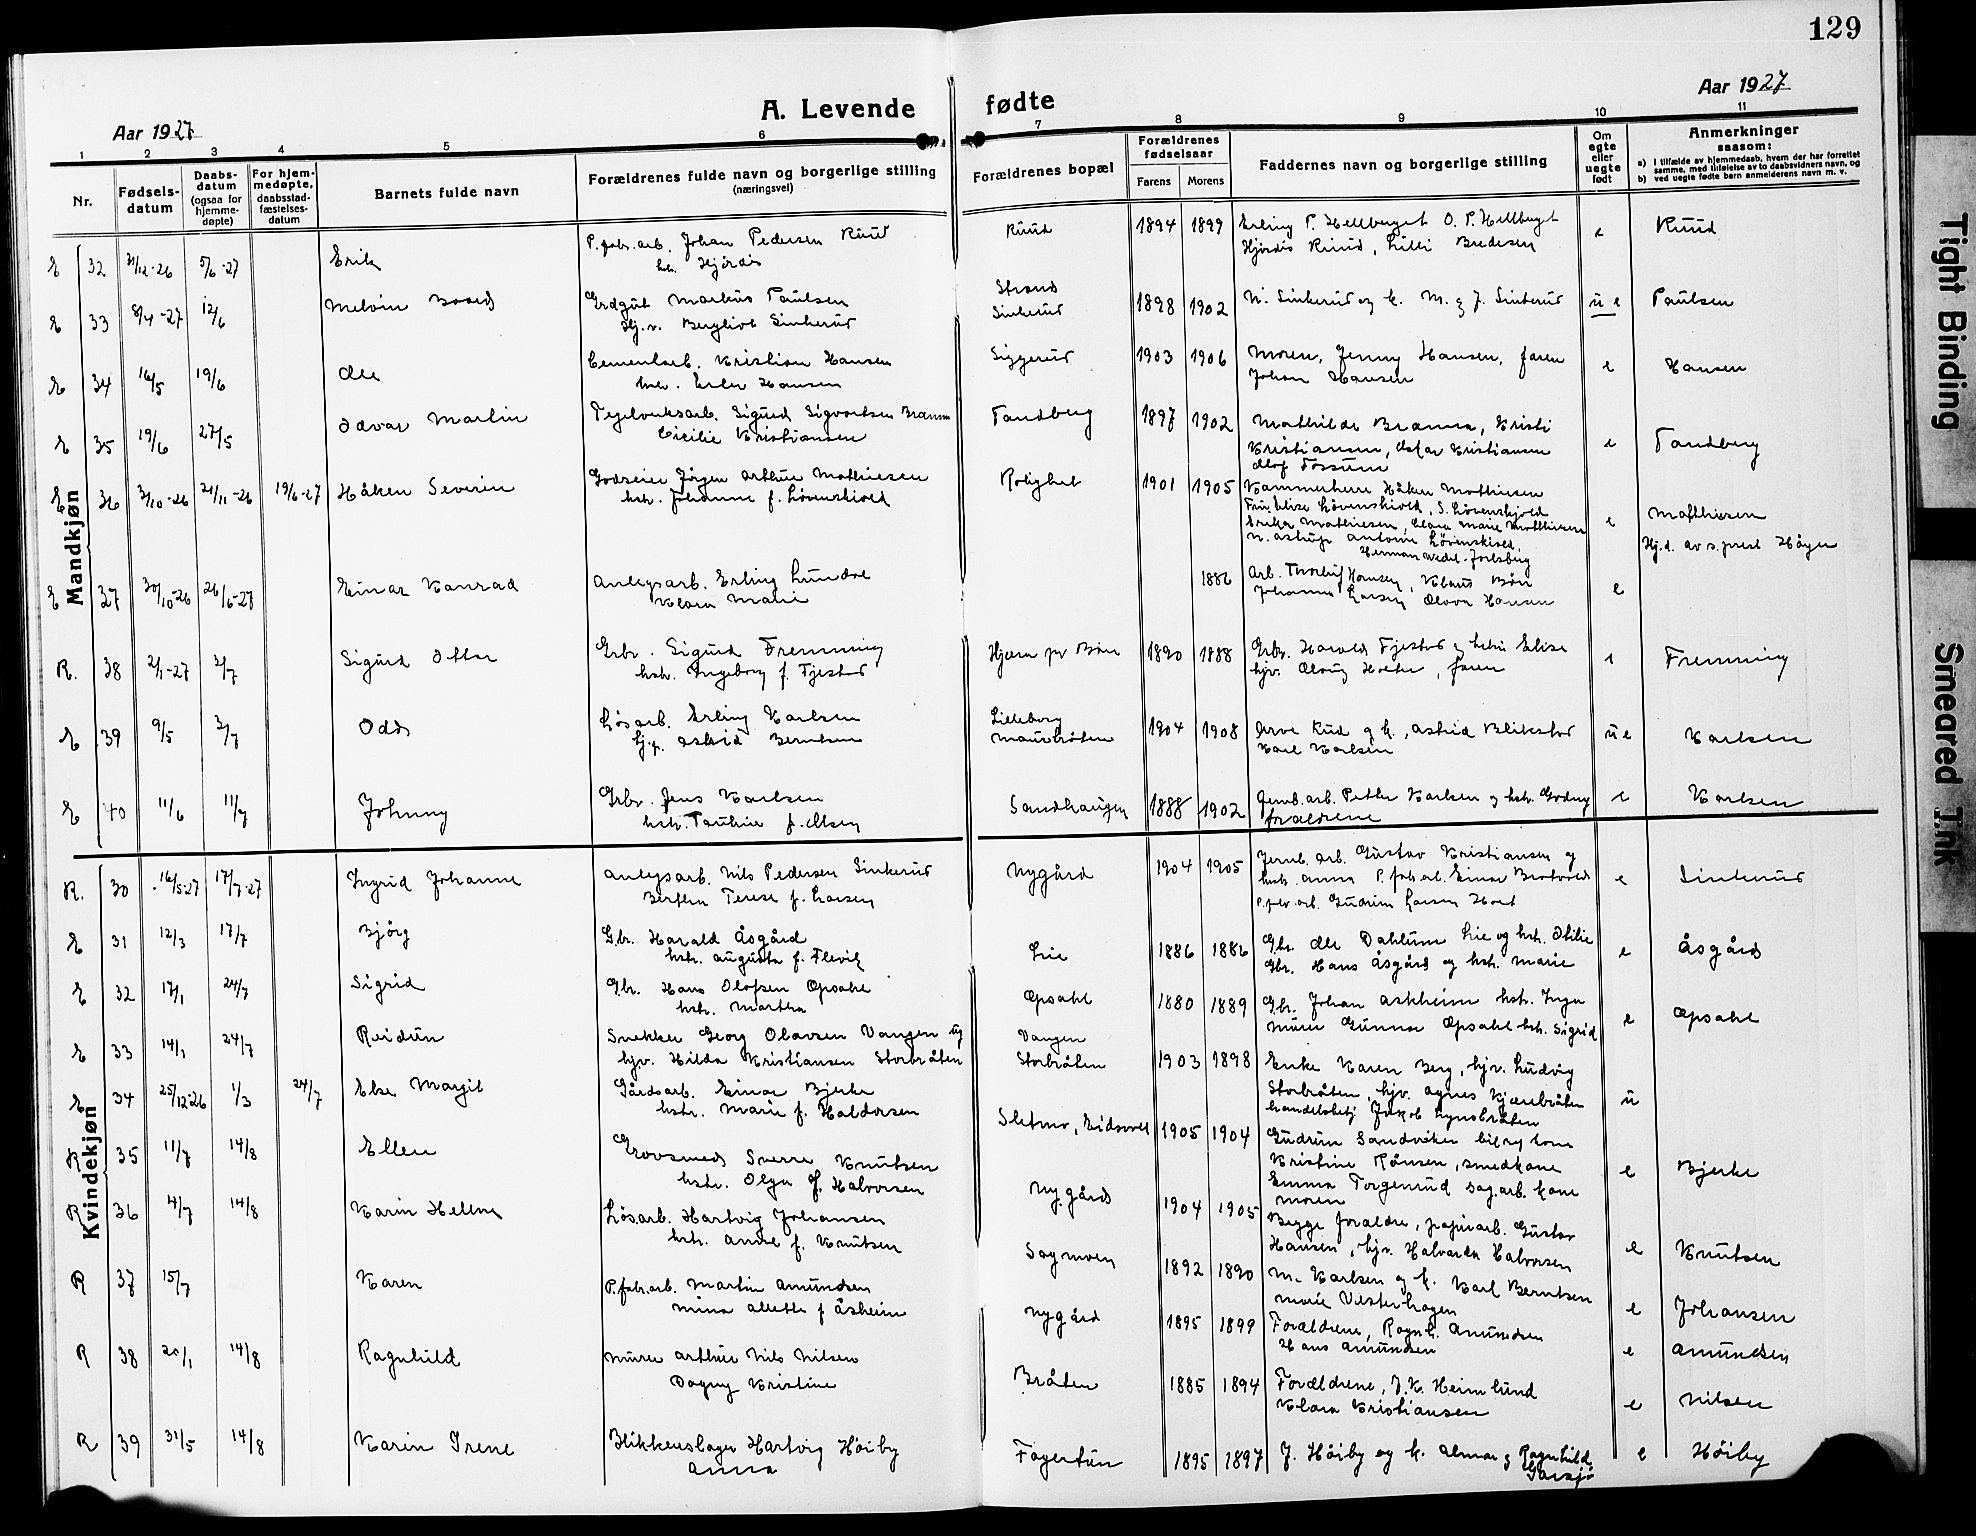 129
Aar 1927
A. Levende fødte
Aar 1927
1 2 3 4 5 6 7 8 9 10 11
Nr.
Fødsels-datum
Daabs-datum (ogsaa for hjemme-døpte)
For hjem-medøpte, daabsstad-fæstelses-datum
Barnets fulde navn
Forældrenes fulde navn og borgerlige stilling (næringsvei)
Forældrenes bopæl
Forældrenes fødselsaar
Farens Morens
Faddernes navn og borgerlige stilling
Om egte eller uegte født
Anmerkninger saasom:
a) I tilfælde av hjemmedaab, hvem der har forrettet samme, med tilføielse av to daabsvidners navn, og
b) ved uegte fødte barn anmelderens navn m. v.
Mandkjøn
E 32 31/12-26 5/6-27 Erik P.fabr.arb. Johan Pedersen Ruud Ruud 1894 1899 Erling P. Hellberget O. P. Hellberget e Ruud
hstr. Hjørdis Hjørdis Ruud, Lilli Bredesen
E 33 8/4-27 12/6 Melvin Grdgut Markus Paulsen Strand 1898 1902 N. Sinkerud og k. M. og J. Sinkerud u e Paulsen
Hj.v. Bergliot Sinkerud Sinkerud
E 34 16/5 19/6 Ole Cementarb. Kristian Hansen Siggerud 1903 1906 Moren, Jenny Hansen, faren e Hansen
hstr. Ester Hansen Johan Hansen
E 35 19/6 27/5 Odvar Martin Teglverksarb. Sigurd Sigvartsen Bramma Tandberg 1897 1902 Mathilde Bramma, Kristi e Tandberg
Cicilie Kristiansen Kristiansen, Oskar Kristiansen
Olof Fossum
E 36 3/10-26 21/11-26 19/6-27 Håken Severin Godseier Jörgen Arthur Mathiesen Rolighet 1901 1905 Kammerherre Håken Mathiesen e Mathiesen
hstr. Johanne f. Løvenskiold Fru Elise Løvenskiold, S. Løvenskjold
Erika Mathiesen, Clara Marie Mathiesen
N. Astrup Antonie Løvenskiold, Hj.d. av s.prest Höyer
Herman Wedel-Jarlsberg
E 37 30/10-26 26/6-27 Einar Konrad Anlegsarb. Erling Lundre 1886 Arb. Thorleif Hansen, Klaus Bön e
Klara Marie Johanna Larsen Olava Hansen
R. 38 2/1-27 3/7 Sigurd Ottar Grbr. Sigurd Fremming Hjera pr Bön 1890 1888 Grbr. Harald Fjestad og hstru Elise e Fremming
hstr. Ingeborg f. Fjestad hjv. Olaug Holter, faren
E 39 9/5 3/7 Odd Løsarb. Erling Karlsen Lilleborg 1904 1908 Arve Rud og k., Astrid Blikstad u e Karlsen
hj.p. Astrid Berntsen Maurbråten Karl Karlsen
E 40 11/6 11/7 Johnny Grbr. Jens Karlsen Sandhaugen 1888 1902 Jernb.arb. Petter Karlsen og hstr. Gudny e Karlsen
hstr. Pauline f. Olsen forældrene
Kvindekjøn
R. 30 16/5-27 17/7-27 Ingrid Johanne Anlegsarb. Nils Pedersen Sinkerud Nygård 1904 1905 Jernb. arb. Gustav Kristiansen og e Sinkerud
Berthe Terese f. Larsen hstr. Anna P. fabr.arb. Einar Brotvold
P.fabr.arb. Gudrun Larsen Hoel
E 31 12/3 17/7 Björg Gbr. Harald Åsgård Lie 1886 1886 Gbr. Ole Dahlum Lie og hstr. Otilie e Åsgård
hstr. Augusta f. Flevik Gbr. Hans Åsgård og hstr. Marie
E 32 17/1 24/7 Sigrid Gbr. Hans Olafsen Opsahl Opsahl 1880 1889 Gbr. Johan Askheim hstr. Inga e Opsahl
hstr. Martha Murer Gunnar Opsahl hstr. Sigrid
E 33 14/1 24/7 Reidun Snekker Georg Olavsen Vangen ug Vangen 1903 1898 Enke Karen Berg, hjv. Ludvig
hjv. Hilda Kristiansen Storbråten Storbråten Storbråten, hjv. Agnes Kjærebråten u
E 34 25/12-26 1/3 24/7 Else Margit Gårdsarb. Einar Bjerke Sletmo, Eidsvoll 1905 1904 Handelsbetj Jakob Lynsbråten
hstr. Marie f. Haldorsen Gudrun Sandviken
R 35 11/7 14/8 Ellen Grovsmed Sverre Knutsen Nygård 1904 1905 Kristine Rånsen, smedkone e Bjerke
hstr. Olga f. Halvorsen Emma Torgenrud sag.arb. kone
moren
R 36 4/7 14/8 Karin Helene Løsarb. Hartvig Johansen Sagmoen 1892 1890 Begge foraldre, papirarb. Gustav e Knutsen
hstr. Anne f. Knutsen Hansen, hjv. Halvarda Halvorsen
R 37 15/7 Karen P.fabr.arb. Martin Amundsen Nygård 1895 1899 M. Karlsen og k. Karl Berntsen e Johansen
Mina Alette f Åsheim Marie Vesterhagen
R 38 20/1 14/8 Ragnhild Murer Arthur Nils Nilsen Bråten 1885 1894 Forældrene, Ragnh. Amundsen e Amundsen
Dagny Kristine Hans Amundsen
Forældrene, J. K. Heimlund e Nilsen
Klara Kristiansen
R 39 31/5 14/8 Karin Irene Blikkenslager Hartvig Höiby Fagertun 1895 1897 J. Höiby og k. Almar og Ragnhild e Höiby
Anna
Tight Binding
Smeared Ink